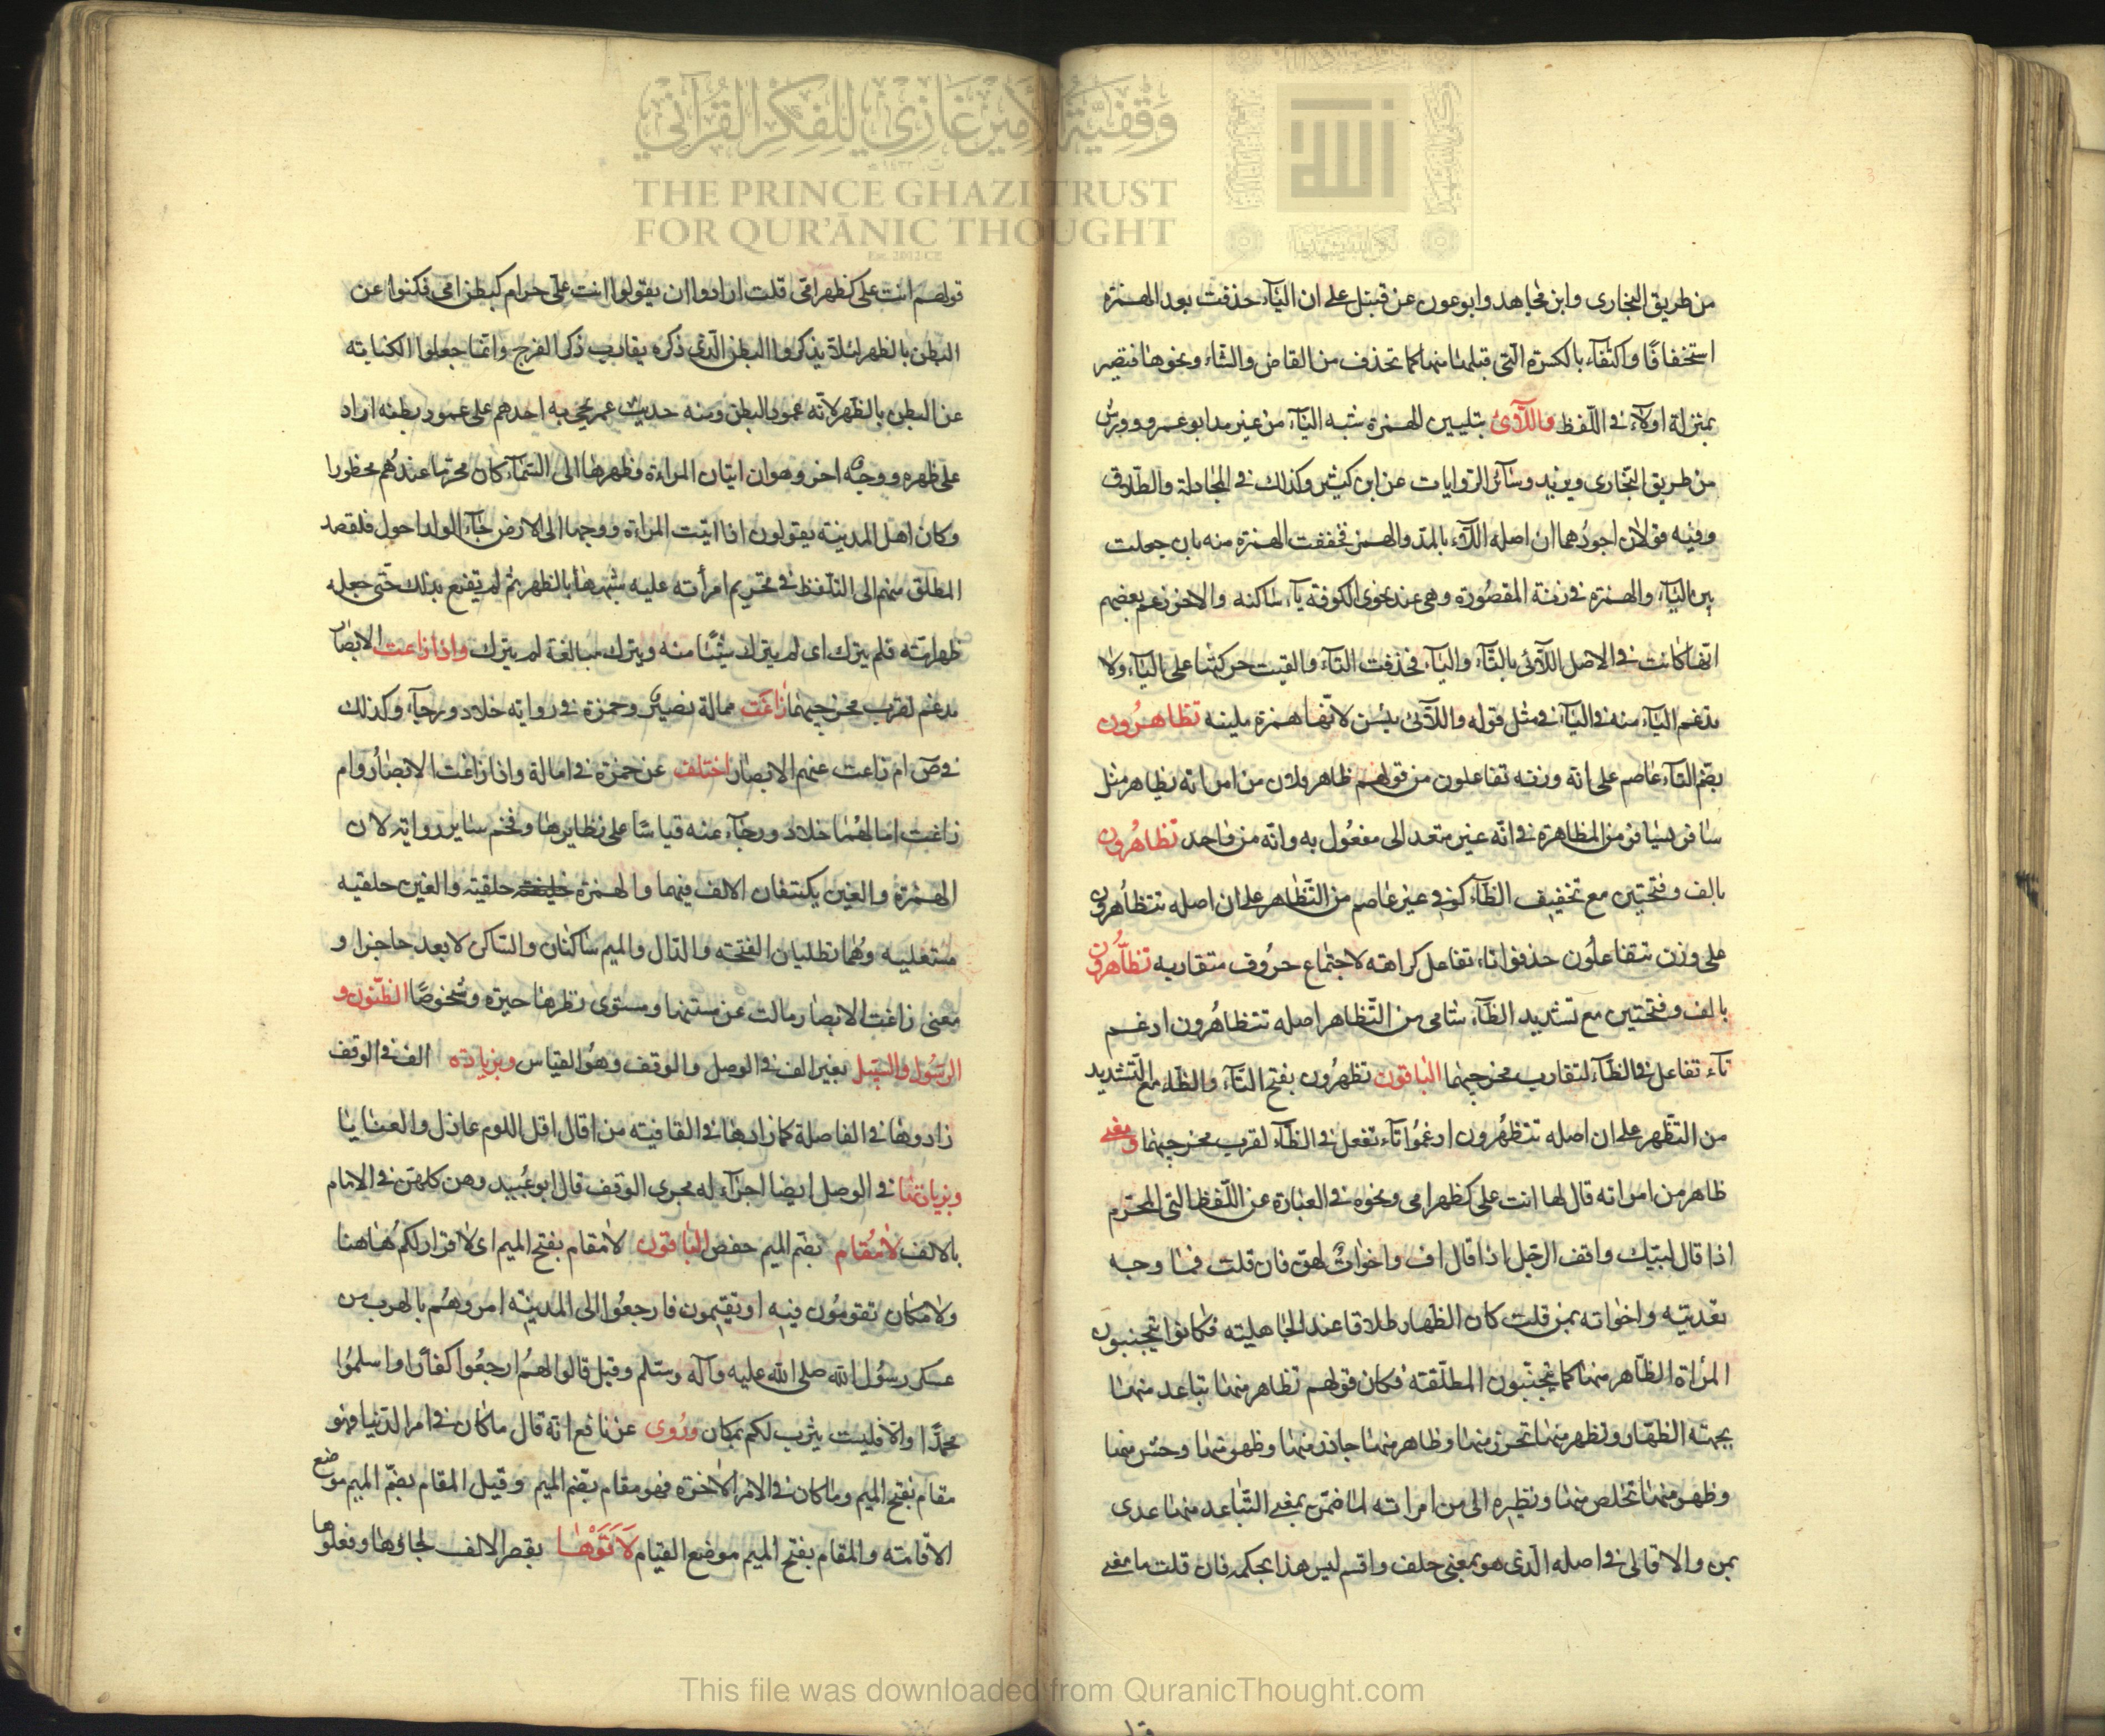 وقفية الأمير غازي للفكر القرآني
THE PRINCE GHAZI TRUST
FOR QUR'ĀNIC THOUGHT
Est. 2012 CE
من طريق البخارى وابن مجاهد وابوعون عن قنبل على ان اليآء حذفت بعد الهمزة
استخفافًا واكتفآء بالكسرة التى قبلها منها كما تحذف من القاض والثاء ونحوها فتصير
بمنزلة اولآء فى اللّفظ واللّائ بتليين الهمزة شبه اليآء من غير مد ابو عمرو وورش
من طريق البخارى ويزيد وسآئر الروايات عن ابن كثير وكذلك فى المجادلة والطلاق
وفيه قولان اجودهما ان اصله اللآء بالمدّ والهمز فخففت الهمزة منه بان جعلت
بين اليآء والهمزة فى زنة المقصورة وهى عند نحوى الكوفة يآء ساكنه والاخر زعم بعضهم
انها كانت فى الاصل اللآئى بالتآء واليآء فحذفت التآء والقيت حركتها على اليآء ولا
تدغم اليآء منه فى اليآء فى مثل قوله واللآئ يئسن لانّها همزة ملينه تظاهرُون
بضم التآء عاصم على انه وزنه تفاعلون من قولهم ظاهر فلان من امراته يظاهر مثل
سافر يسافر من المظاهرة فى انّه غير متعد الى مفعُول به وانّه من واحد تظاهرُون
بالف وفتحتين مع تخفيف الظآء كوفى غير عاصم من التّظاهر على ان اصله تتظاهرون
على وزن تتفاعلُون حذفوا تاء تفاعل كراهته لاجتماع حرُوف متقاربه تظّاهرُون
بالف وفتحتين مع تشديد الظآء شامى من التّظاهر اصله تتظاهرُون ادغم
تآء تفاعل فى الظآء لتقارب مخرجيهما الباقون تظهرُون بفتح التّآء والظاء مع التّشديد
من التظهر على ان اصله تتظهرُون ادغمُوا تآء تفعل فى الظآء لقرب مخرجيهما ومعنى
ظاهر من امراته قال لها انت على كظهر امى ونحوه فى العبارة عن اللّفظ التى المحرم
اذا قال لبيّك وافف الرجل اذا قال اف واخواتٌ لهن فان قلت فما وجه
تعديته واخواته بمن قلت كان الظهار طلاقا عند الجاهليته فكانوا يتجنبون
المرأة الظاهر منها كما يتجنّبون المطلّقة فكان قولهم تظاهر منها تباعد منها
بجهته الظهار وتظهر منها تحرز منها وظاهر منها حاذر منها وظهر منها وحش منها
وظهر منها تخلص منها ونظيره الى من امراته لما ضمن بمعنى التّباعد منها عدى
بمن والا فالى فى اصله الّذى هو بمعنى حلف واقسم ليس هذا بحكمه فان قلت ما معنى
قولهم انت على كظهر امى قلت ارادوا ان يقولوا انت علىّ حرام كبطن امى فكنوا عن
البطن بالظهر لئلا يذكروا البطن الّذى ذكره يقارب ذكر الفرج وانّما جعلوا الكنايته
عن البطن بالظهر لانّه عمود البطن ومنه حديث عمر يجئ به احدهم على عمود بطنه اراد
على ظهره ووجه اخر وهو ان اتيان المراءة وظهرها الى السّمآء كان محرّما عندهُم محظورا
وكان اهل المدينة يقولون اذا اتيت المراءة ووجهها الى الارض جآء الولد احول فلقصد
المطلق منهم الى التلفظ فى تحريم امرأته عليه شبهها بالظهر ثم لم يقنع بذلك حتى جعله
ظهر امّه فلم يترك اى لم يترك شيئًا منه ويترك مبالغة لم يترك واذ زاغت الابصار
مدغم لقرب مخرجيهما زاغَت ممالة نصير وحمزة فى روايته خلاد ورجآء وكذلك
فى صٓ ام زاغت عنهم الابصار اختلف عن حمزة فى امالة واذ زاغت الابصَارُ وام
زاغت امالهُما خلاد ورجآء عنه قياسًا على نظايرها وفخم ساير رواته لان
الهمزة والغين يكتنفان الالف فيهما والهمزة حلقيته والغين حلقيه
مستعليه وهُما تطلبان الفتحه والذال والميم ساكنان والساكن لا يعد حاجزا و
معنى زاغت الابصار مالت عن سننها ومستوى نظرها حيرة وشُخوصًا الظّنون و
الرسُول والسّبيل بغير الف فى الوصل والوقف وهُو القياس وبزيادة الف فى الوقف
زادوها فى الفاصلة كما زادها فى القافيته من قال اقل اللوم عاذل والعتابا
وبزيادتها فى الوصل ايضا اجرآء له مجرى الوقف قال ابو عُبيد وهن كلهن فى الامام
بالالف لامُقام بضم الميم حفص الباقون لامقام بفتح الميم اى لا قرار لكم هُاهنا
ولا مكان تقومُون فيه او تقيمون فارجعُوا الى المدينه امروهُم بالهرب من
عسكر رسُول الله صلى الله عليه وآله وسلّم وقيل قالوا لهمُ ارجعُوا كفارًا واسلمُوا
محمدًا والا فليست يثرب لكم بمكان ورُوى عن نافع انه قال ماكان فى امر الدنيا فهو
مقام بفتح الميم وماكان فى الامر الاخرة فهو مقام بضم الميم وقيل المقام بضم الميم موضع
الاقامته والمقام بفتح الميم موضع القيام لَاَتَوْهَا بقصر الالف لجاؤها وفعلوها
This file was downloaded from QuranicThought.com